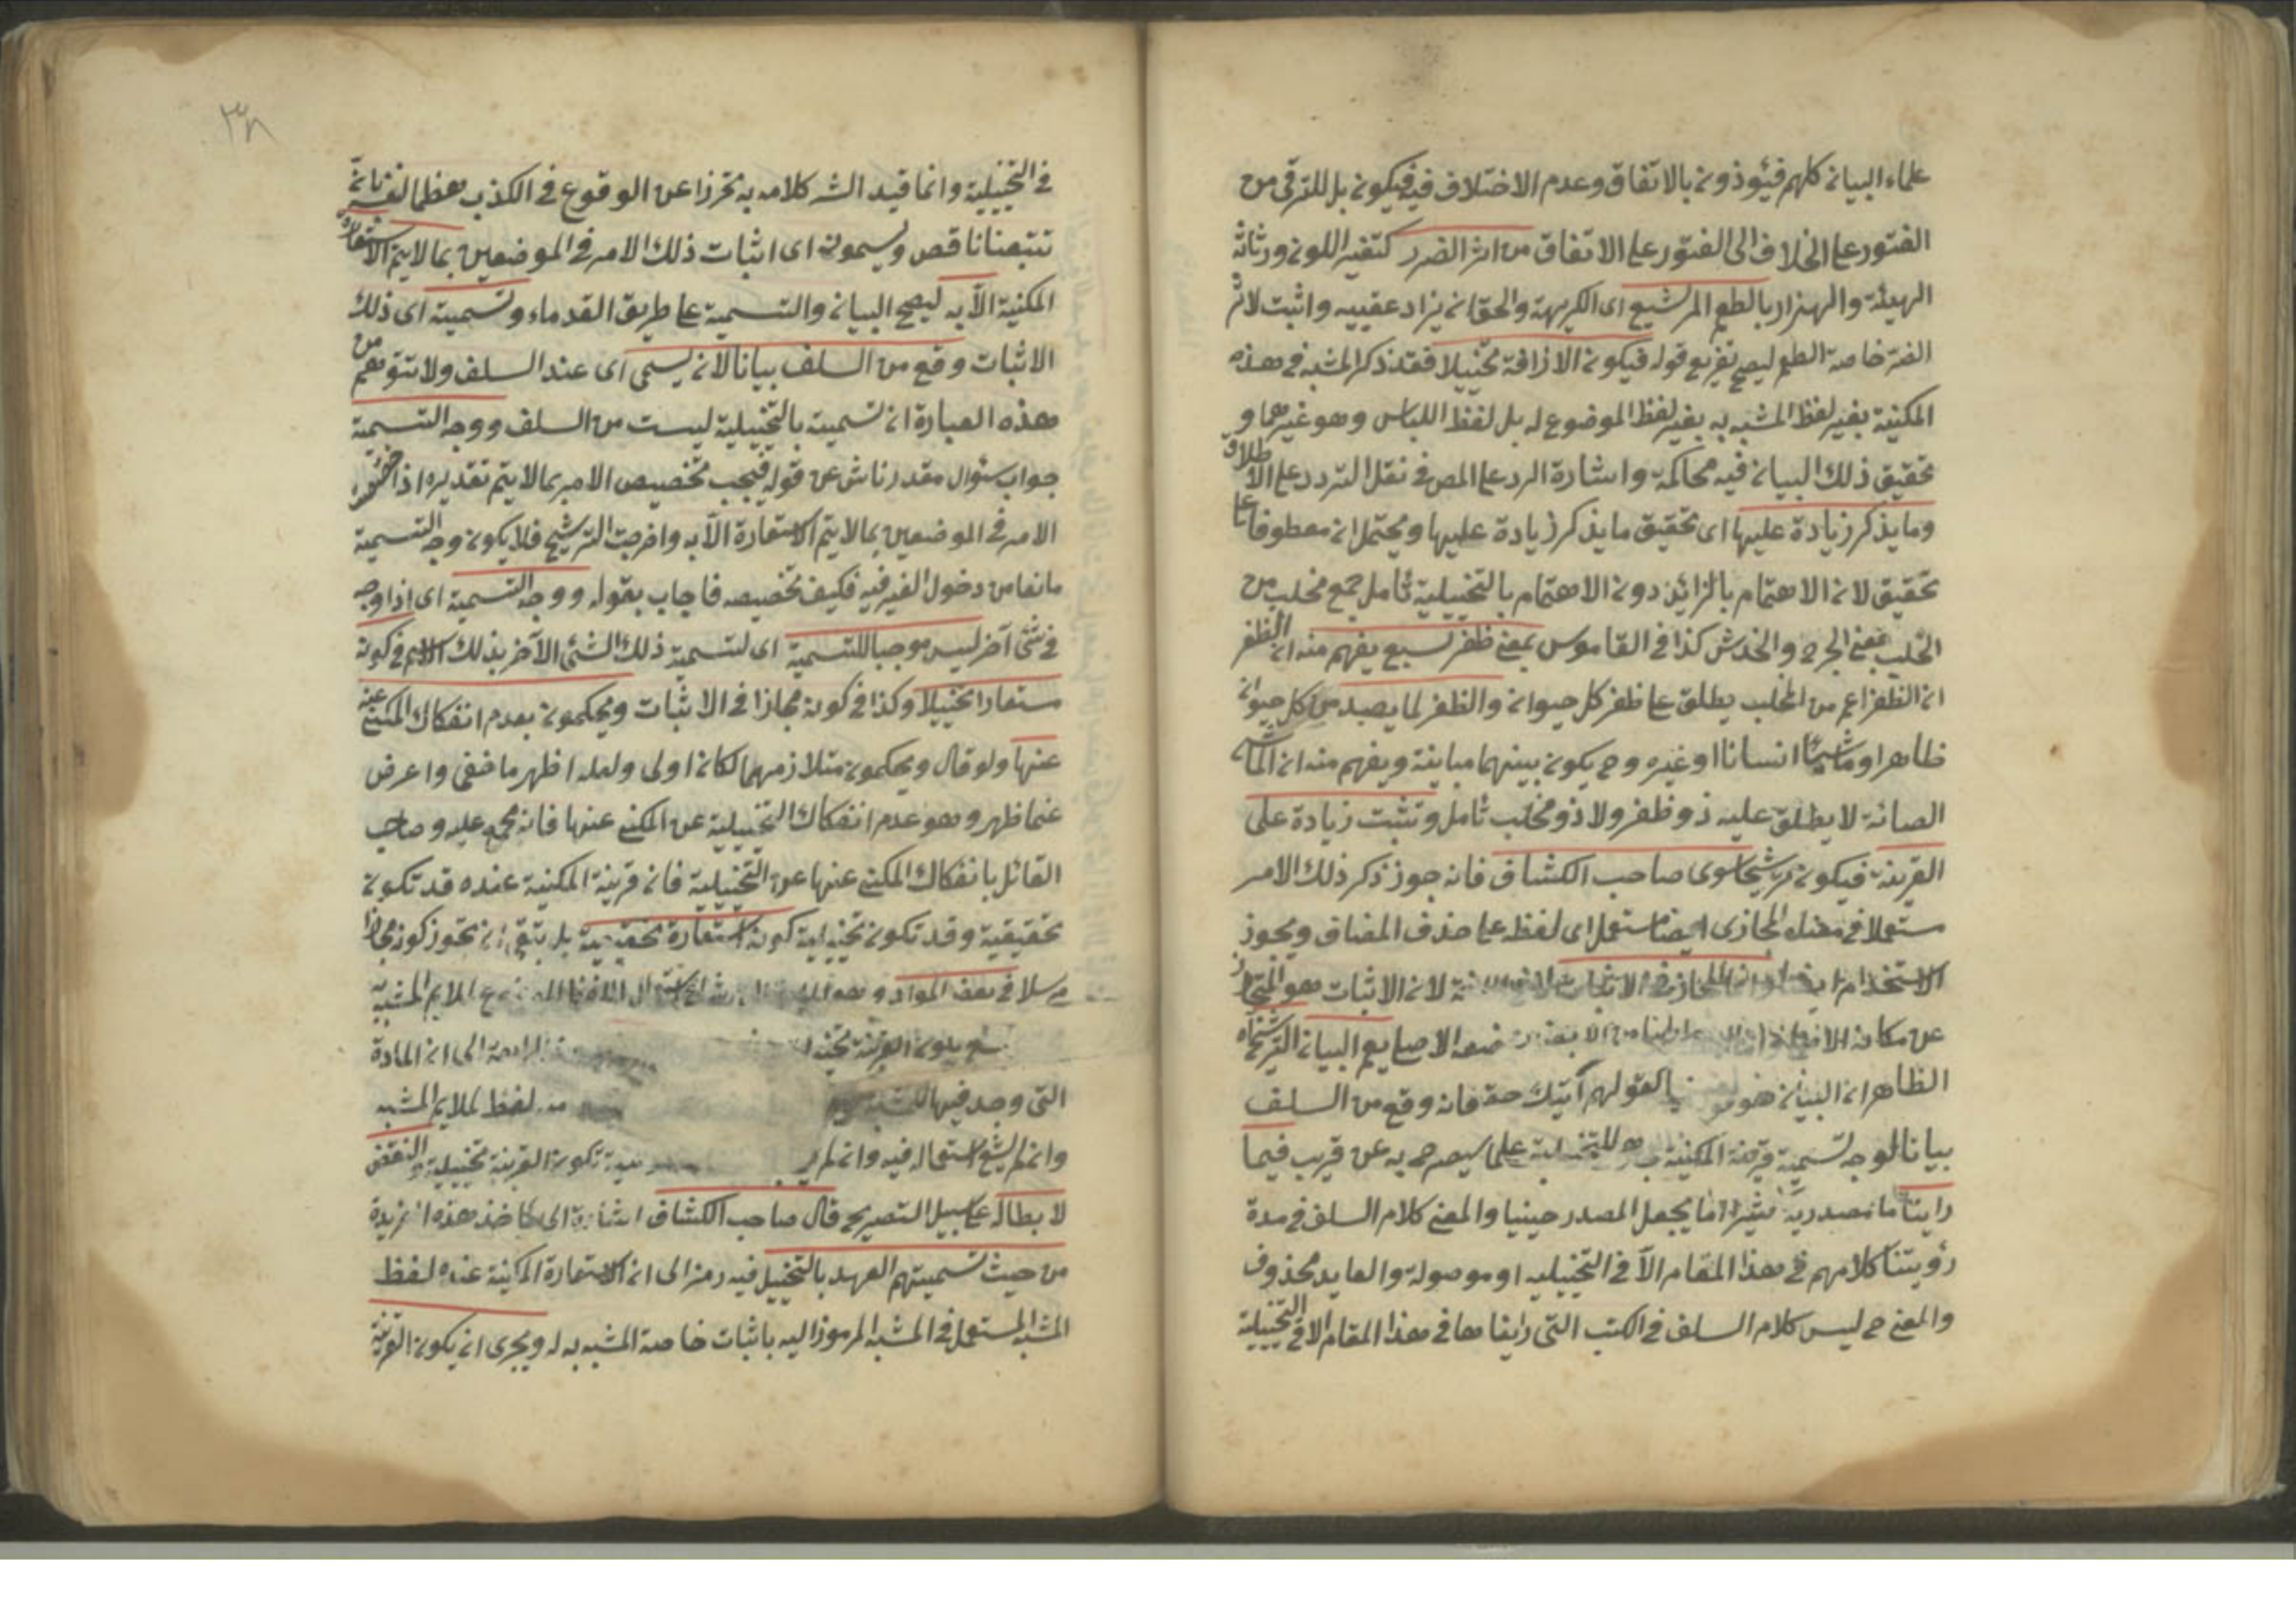 علماء البيان كلهم فيؤذون بالاتفاق وعدم الاختلاف فيه فيكون بل للترقى من
الفتور على الخلاف الى الفتور على الاتفاق من اثر الضرر كتغير اللون ورثاثة
الهيئة والهزار بالطعم المر الشبع اى الكريهة والحق ان يزاد عقيبه واثبت لاثر
الضر خاصة الطعم ليصح تفريع قوله فيكون الاذاقة تخييلا فقد ذكر المشبه فى هذه
المكنية بغير لفظ المشبه به بغير لفظ الموضوع له بل لفظ اللباس وهو غيرهما و
تحقيق ذلك البيان فيه محاكمة واشارة الرد على المص فى نقل التردد على الاطلاق
وما يذكر زيادة عليها اى تحقيق ما يذكر زيادة عليها ويحتمل ان معطوفا على
تحقيق لان الاهتمام بالزائد دون الاهتمام بالتخييلية تأمل جمع مخلب من
الخلب بمعنى الجرح والخدش كذا فى القاموس بمعنى ظفر السبع يفهم منه ان الظفر
ان الظفر اعم من المخلب يطلق على ظفر كل حيوان والظفر لما يصيد من كل حيوان
ظاهرا وماشيا انسانا او غيره وح يكون بينهما مباينة ويفهم منه ان
لا يطلق عليه ذو ظفر ولا ذو مخلب تأمل وتثبت زيادة على
القرينة فيكون ترشيحا سوى صاحب الكشاف فانه جوز ذكر ذلك الامر
مستعملا فى معناه المجازى ايضا مستعمل اى لفظه على حذف المضاف ويجوز
الاستخدام لان الاثبات هو المتجاوز
عن مكانه البيان
الظاهر ان البيان كقولهم آتيك حقه فانه وقع من السلف
بيانا لوجه تسمية قرينة المكنية على ما سيصرح به عن قريب فيما
راينا ما مصدرية يجعل المصدر حينيا والمعنى كلام السلف فى مدة
رؤيتنا كلامهم فى هذا المقام الا فى التخييلية او موصولة والعايد محذوف
والمعنى ح ليس كلام السلف فى الكتب التى رايناها فى هذا المقام الا فى التخييلية
٣٨
فى التخييلية وانما قيد الشر كلامه به تحرزا عن الوقوع فى الكذب هضما لنفسه بانه
تتبعنا ناقص ويسمونه اى اثبات ذلك الامر فى الموضعين بما لا يتم الاستعارة
المكنية الا به ليصح البيان والتسمية على طريق القدماء وتسمية اى ذلك
الاثبات وقع من السلف بيانا لان يسمى اى عند السلف ولا تتوهم من
هذه العبارة ان تسمية بالتخييلية ليست من السلف ووجه التسمية
جواب سؤال مقدر ناش عن قوله فيجب تخصيص الامر بما لا يتم تقديره اذا خص
الامر فى الموضعين بما لا يتم الاستعارة الا به واخرجت الترشيح فلا يكون وجه التسمية
مانعا من دخول الغير فيه فكيف تخصيصه فاجاب بقوله ووجه التسمية اى اذا وجد
فى شئ آخر ليس موجبا للتسمية اى لتسمية ذلك الشئ الآخر بذلك الاسم فى كونه
مستعارا تخييلا وكذا فى كونه مجازا فى الاثبات ويحكمون بعدم انفكاك المكنى عنه
عنها ولو قال ويحكمون متلازمهما لكان اولى ولعله اظهر ما خفى واعرض
عما ظهر وهو عدم انفكاك التخييلية عن المكنى عنها فانه مجمع عليه وصاحب
القائل بانفكاك المكنى عنها عن التخييلية فان قرينة المكنية عنده قد تكون
تحقيقية وقد تكون تخييلية كونه استعارة تحقيقية بل ينبغى ان يجوز كونه مجازا
مرسلا فى بعض المواد وهو لملايم المشبه به
القرينة ان المادة
التى وجد فيها لفظ لملايم المشبه
وان لم يشع استعماله فيه وان لم تكون القرينة تخييلية والنقض
لابطاله على سبيل التصريح قال صاحب الكشاف اشارة الى ماخذ هذه الفريدة
من حيث تسميتهم العهد بالتخييل فيه رمز الى ان الاستعارة المكنية عنده لفظ
المشبه المستعمل فى المشبه المرموز اليه باثبات خاصة المشبه به له ويجرى ان يكون القرينة